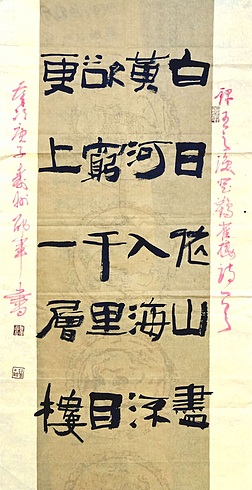 王之渙登鸛雀樓詩一首
白日依山盡
黃河入海流
欲窮千里目
更上一層樓
庚子 書